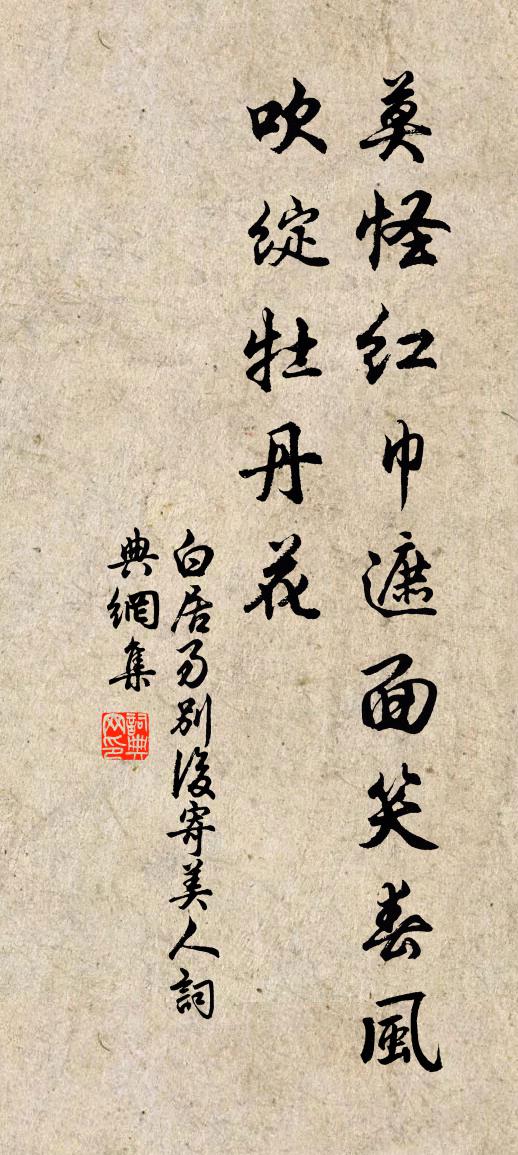 莫怪紅巾遮面笑春風
吹綻牡丹花
白居易別後寄美人詞
典網集
詞典網印